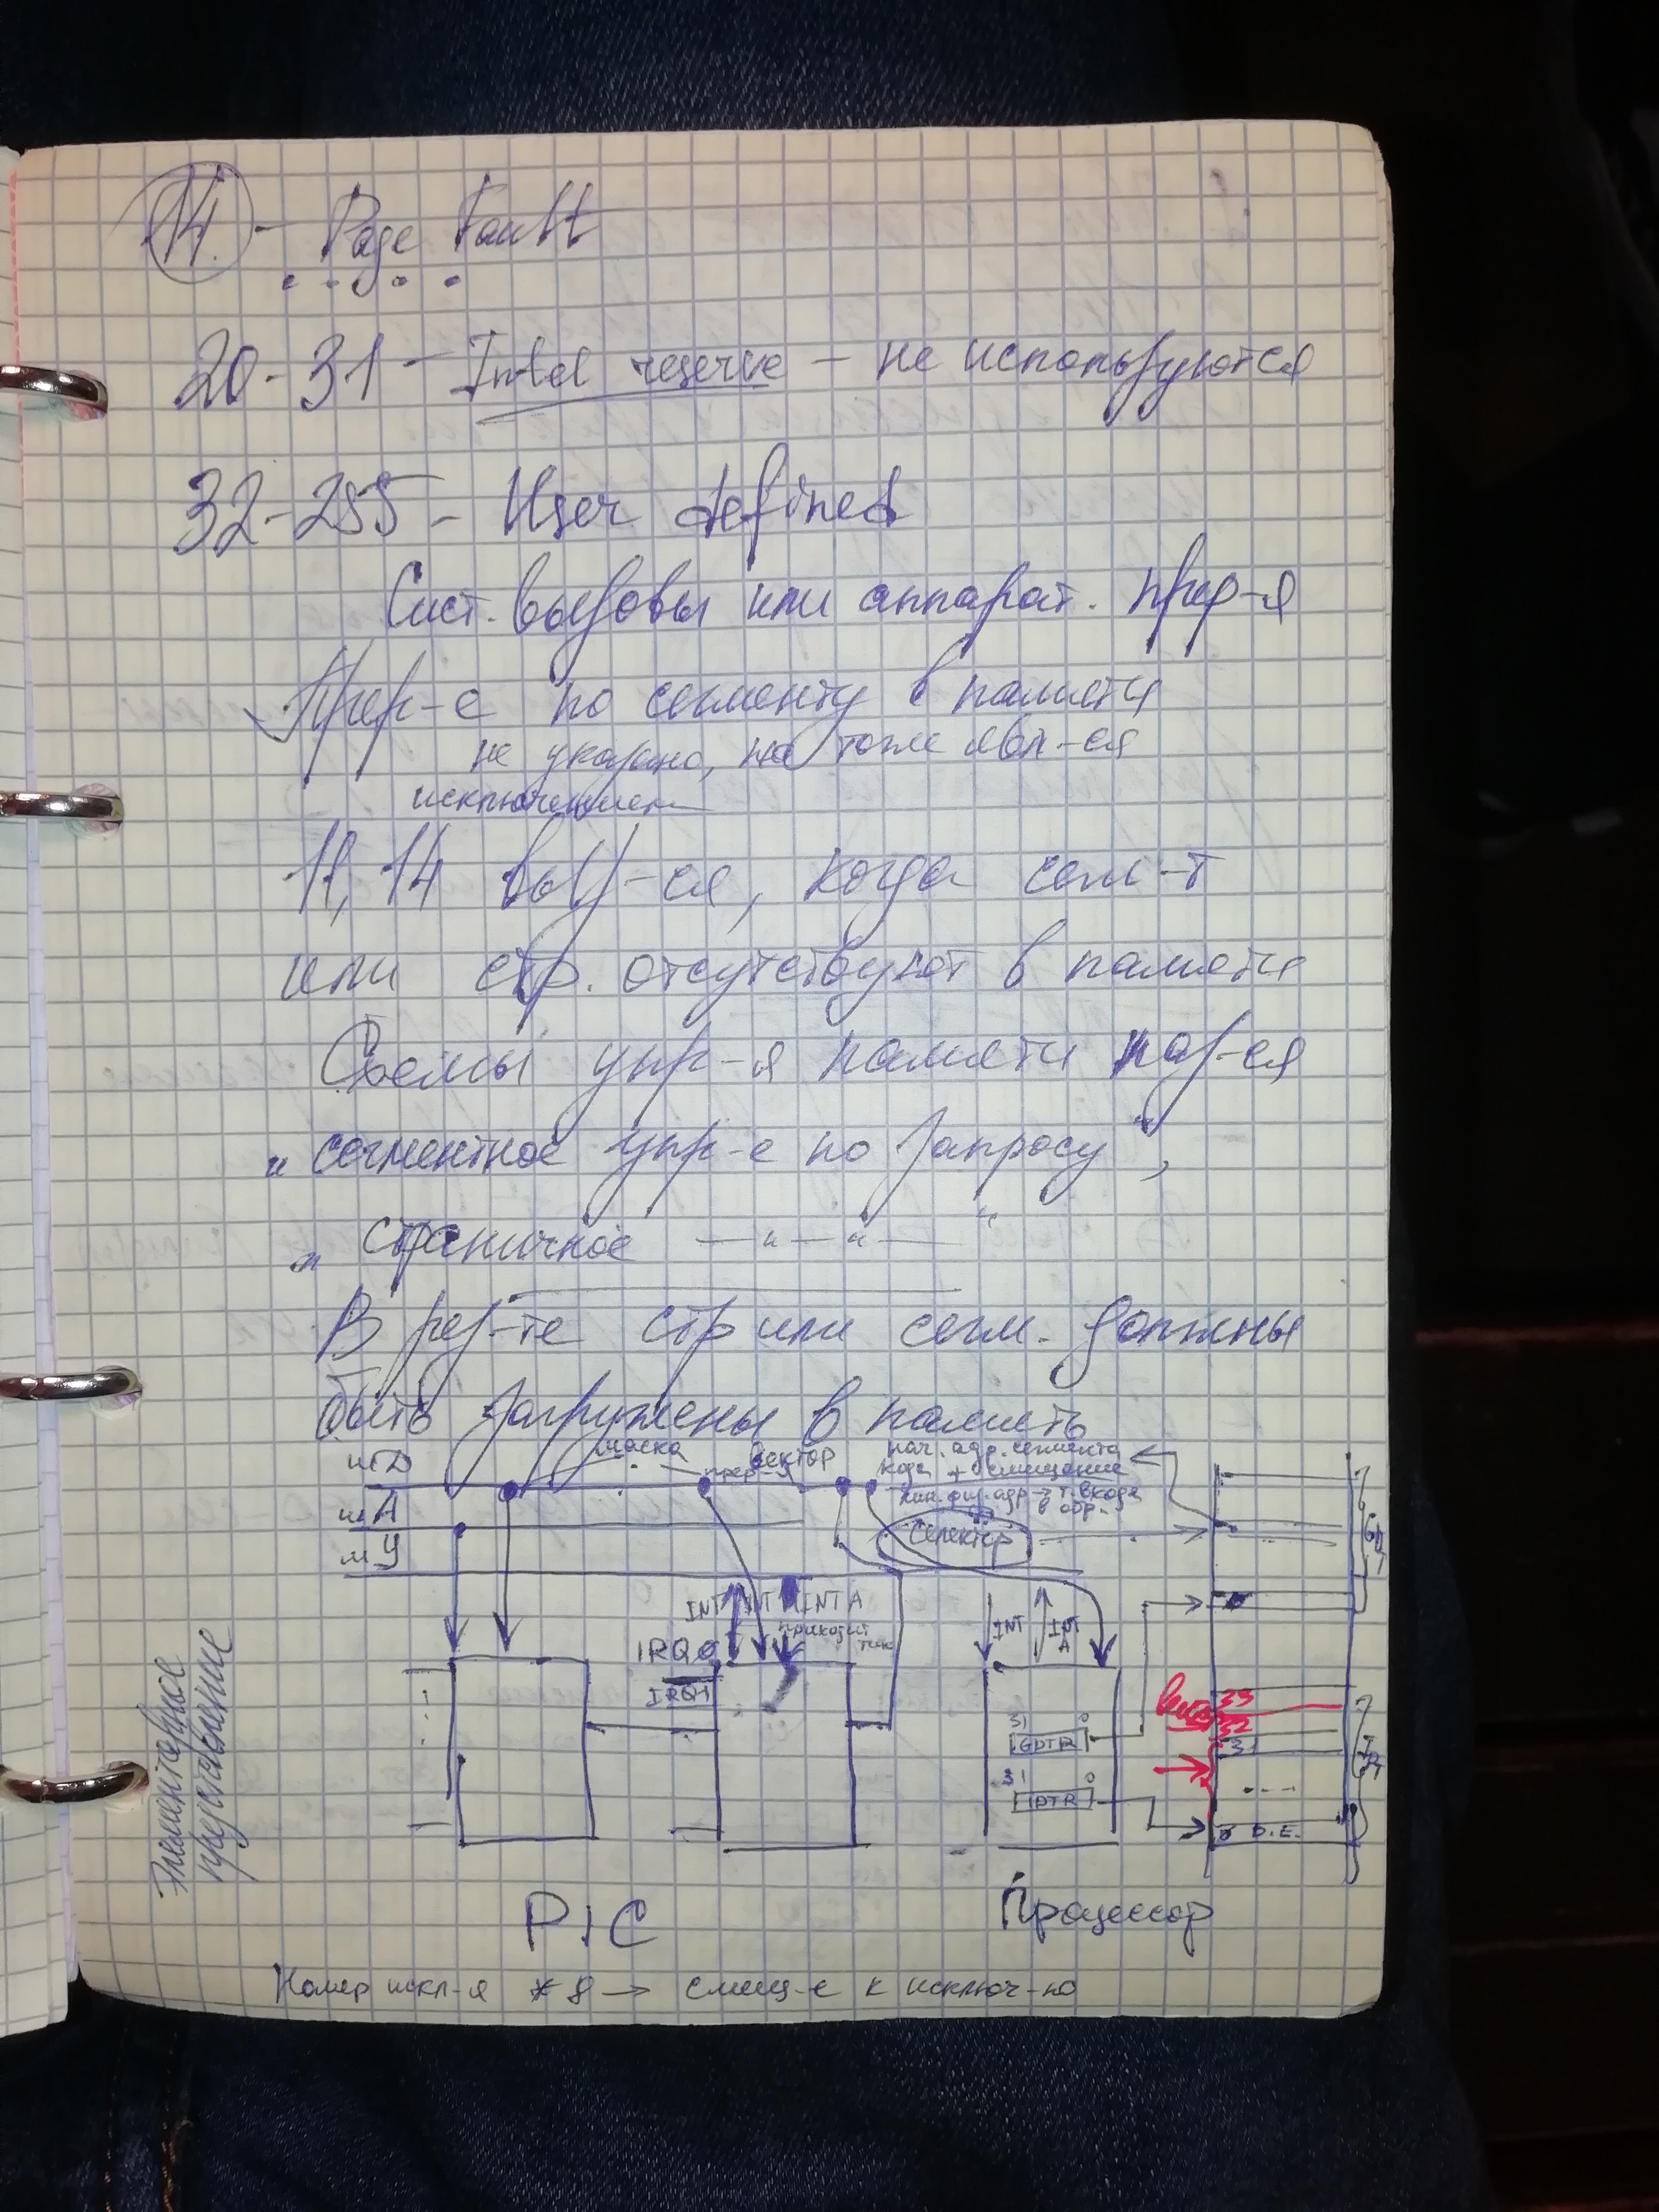 14. - Page Fault
20-31 - Intel reserve - не используются
32-255 - User defined
Сист. вызовы или аппарат. прер-я
Прер-е по сегменту в памяти
не указано, но тоже явл-ся
исключением
11, 14 выз-ся, когда сегм-т
или стр. отсутствуют в памяти
Схемы упр-я памяти наз-ся
"сегментное упр-е по запросу",
"страничное —"—"—"
В рез-те стр или сегм. должны
быть загружены в память
шД
маска
прер-я
вектор
нач. адр. сегмента
кода + смещение
лин. физ. адр → т. входа
в обр.
шА
Селектор
шУ
GDT
INT
INTA
приходит
тик
INT
INT
A
IRQ0
IRQ1
31 0
GDTR
31 0
IDTR
33
32
31
...
0 D.E.
IDT
Элементарное
представление
PIC
Процессор
Номер искл-я * 8 → смещ-е к исключ-ю